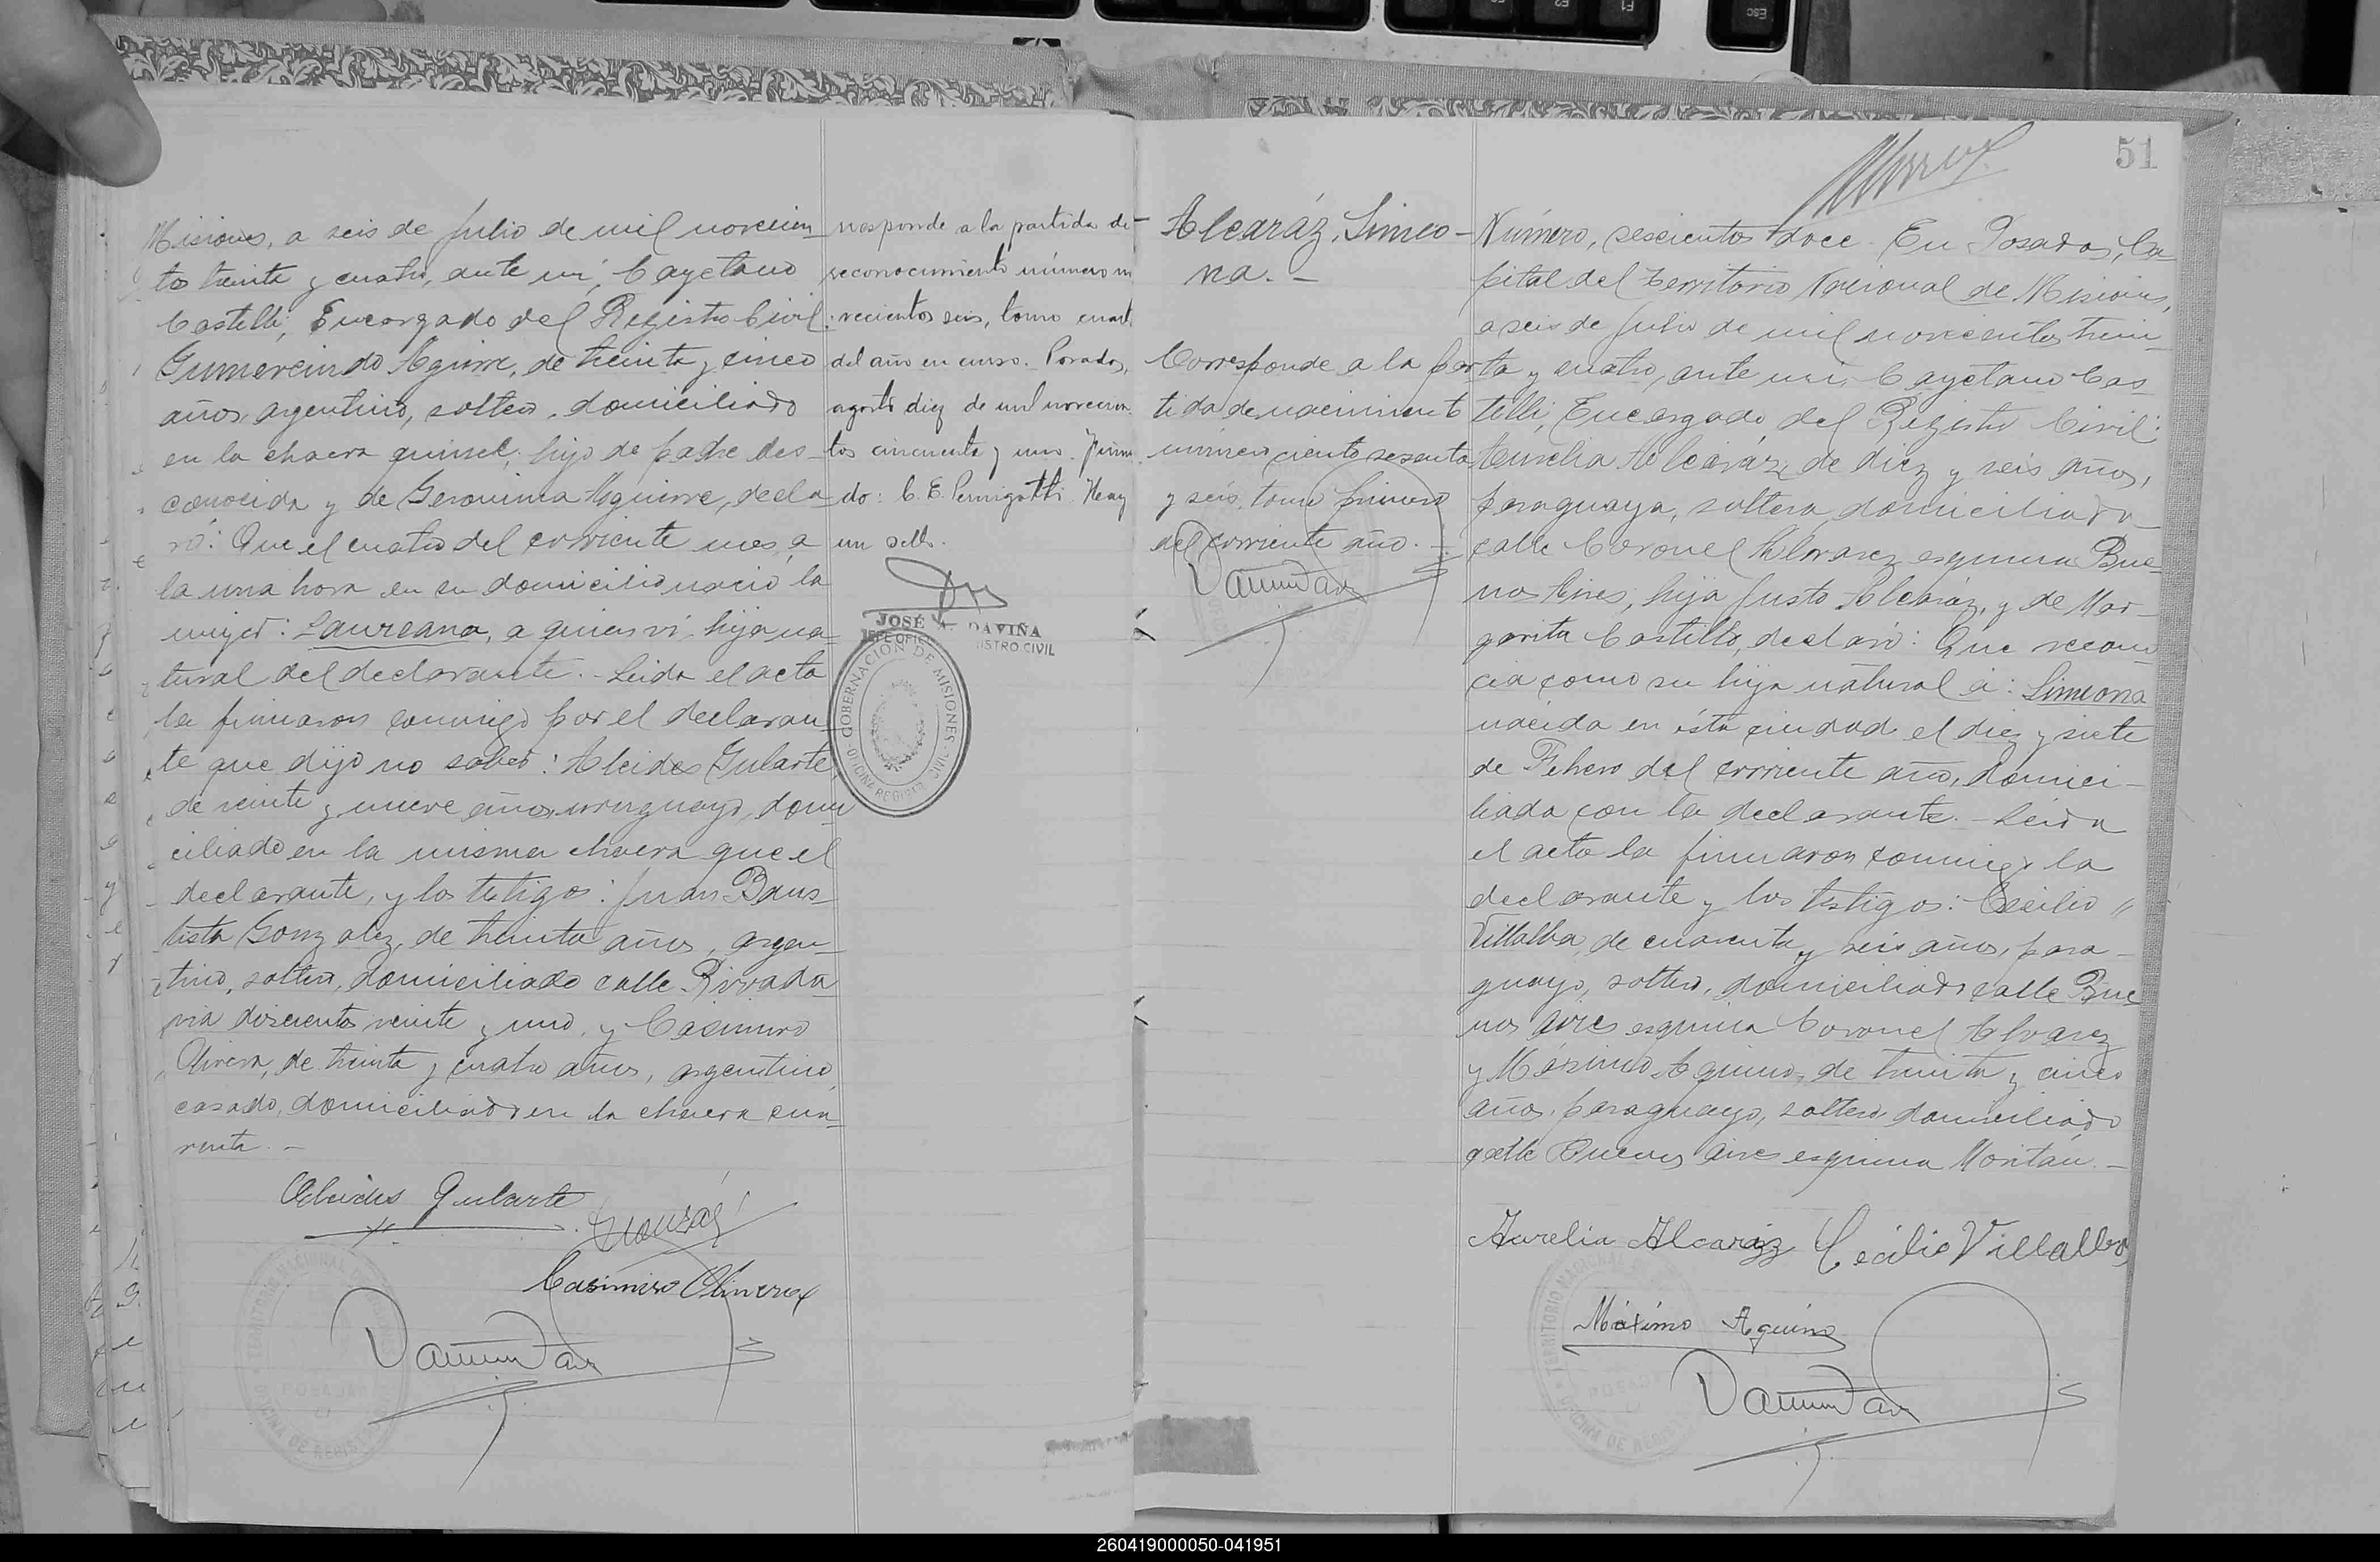 Misiones, a seis de Julio de mil novecien
tos treinta y cuatro, ante mi, Cayetano
Castelli, Encargado del Registro Civil:
Gumercindo Aguirre, de treinta y cinco
años, argentino, soltero, domiciliado
en la chacra quince, hijo de padre des-
conocido y de Geronima Aguirre, decla
ró: Que el cuatro del corriente mes, a
la una hora en su domicilio nació la
mujer: Laureana, a quien vi, hija na
tural del declarante.- Leida el acta
la firmaron conmigo por el declaran
te que dijo no saber: Alcides Gularte,
de veinte y nueve años, uruguayo, domi
ciliado en la misma chacra que el
declarante, y los testigos: Juan Baus
tista Gonzalez, de treinta años, argen-
tino, soltero, domiciliado calle Rivada
via doscientos veinte y uno, y Casimiro
Olivera, de treinta y cuatro años, argentino,
casado, domiciliado en la chacra cua
renta.-
Alcides Gularte
Casimiro Olivera
rresponde a la partida de
reconocimiento número
vecientos seis, tomo
del año en curso. Posadas,
agosto diez de mil novecien
tos cincuenta y uno. Firma
do: C. E. Hay
un sello.
JOSÉ A. DAVIÑA
JEFE OFIC
ISTRO CIVIL
GOBERNACION DE MISIONES
OFICINA REGISTRO CIVIL
51
Alcaráz, Simeo-
na.-
Corresponde a la par
tida de nacimiento
número ciento sesenta
y seis, tomo primero
del corriente año.-
Número, sescientos doce. En Posadas, Ca
pital del Territorio Nacional de Misiones,
a seis de Julio de mil novecientos trein
ta y cuatro, ante mi, Cayetano Cas
telli, Encargado del Registro Civil:
Aurelia Alcaráz, de diez y seis años,
paraguaya, soltera, domiciliada
calle Coronel Alvarez esquina Bue
nos Aires, hija Justo Alcaráz, y de Mar-
garita Castillo, declaró: Que recono
cia como su hija natural a: Simeona
nacida en ésta ciudad el diez y siete
de Febrero del corriente año, domici-
liada con la declarante.- Leida
el acta la firmaron conmigo la
declarante y los testigos: Cecilio "
Villalba, de cuarenta y seis años, para-
guayo, soltero, domiciliado calle Bue
nos Aires esquina Coronel Alvarez
y Máximo Aquino, de treinta y cinco
años, paraguayo, soltero, domiciliado
calle Buenos Aires esquina
Aurelia Alcaráz Cecilio Villalba
Máximo Aquino
260419000050-041951